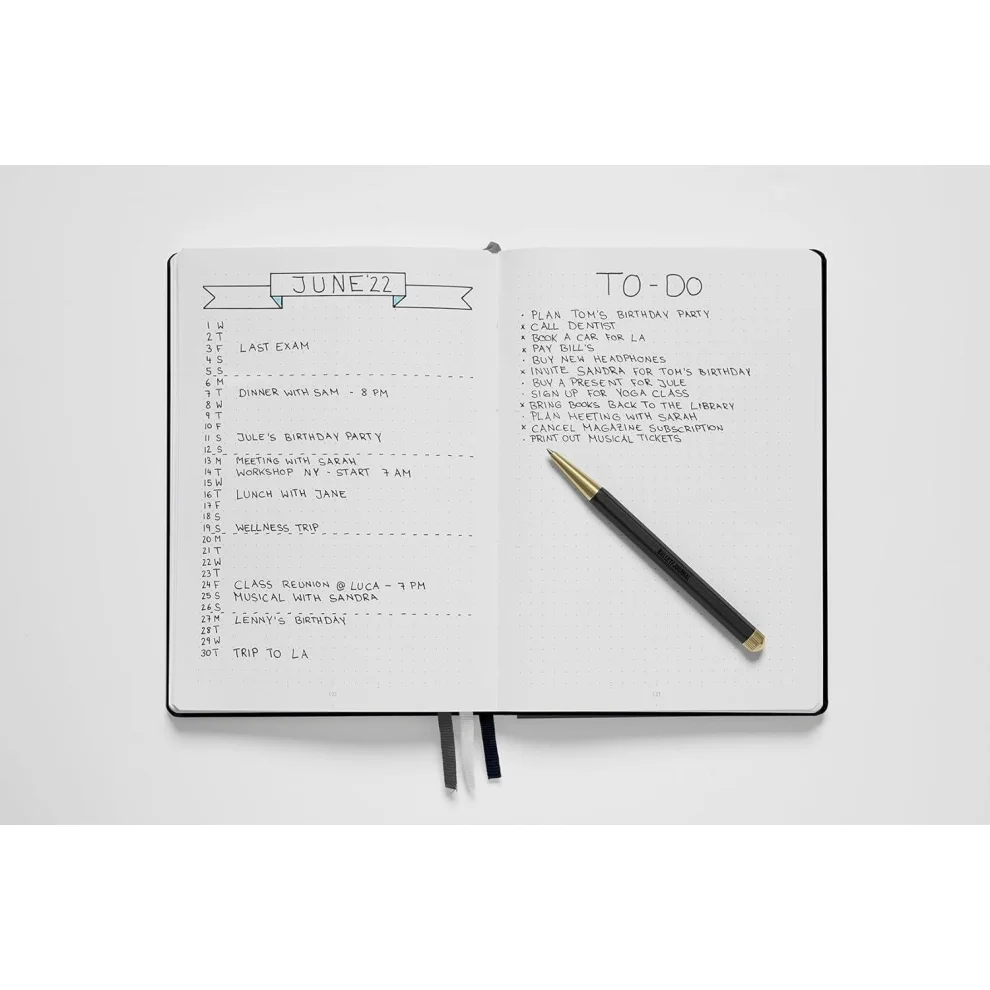 JUNE'22
1 W
2 T
3 F LAST EXAM
4 S
5 S
6 M
7 T DINNER WITH SAM - 8 PM
8 W
9 T
10 F
11 S JULE'S BIRTHDAY PARTY
12 S
13 M MEETING WITH SARAH
14 T WORKSHOP NY - START 7 AM
15 W
16 T LUNCH WITH JANE
17 F
18 S
19 S WELLNESS TRIP
20 M
21 T
22 W
23 T
24 F CLASS REUNION @ LUCA - 7 PM
25 S MUSICAL WITH SANDRA
26 S
27 M LENNY'S BIRTHDAY
28 T
29 W
30 T TRIP TO LA
TO-DO
· PLAN TOM'S BIRTHDAY PARTY
x CALL DENTIST
x BOOK A CAR FOR LA
x PAY BILL'S
· BUY NEW HEADPHONES
x INVITE SANDRA FOR TOM'S BIRTHDAY
· BUY A PRESENT FOR JULE
· SIGN UP FOR YOGA CLASS
x BRING BOOKS BACK TO THE LIBRARY
· PLAN MEETING WITH SARAH
x CANCEL MAGAZINE SUBSCRIPTION
· PRINT OUT MUSICAL TICKETS